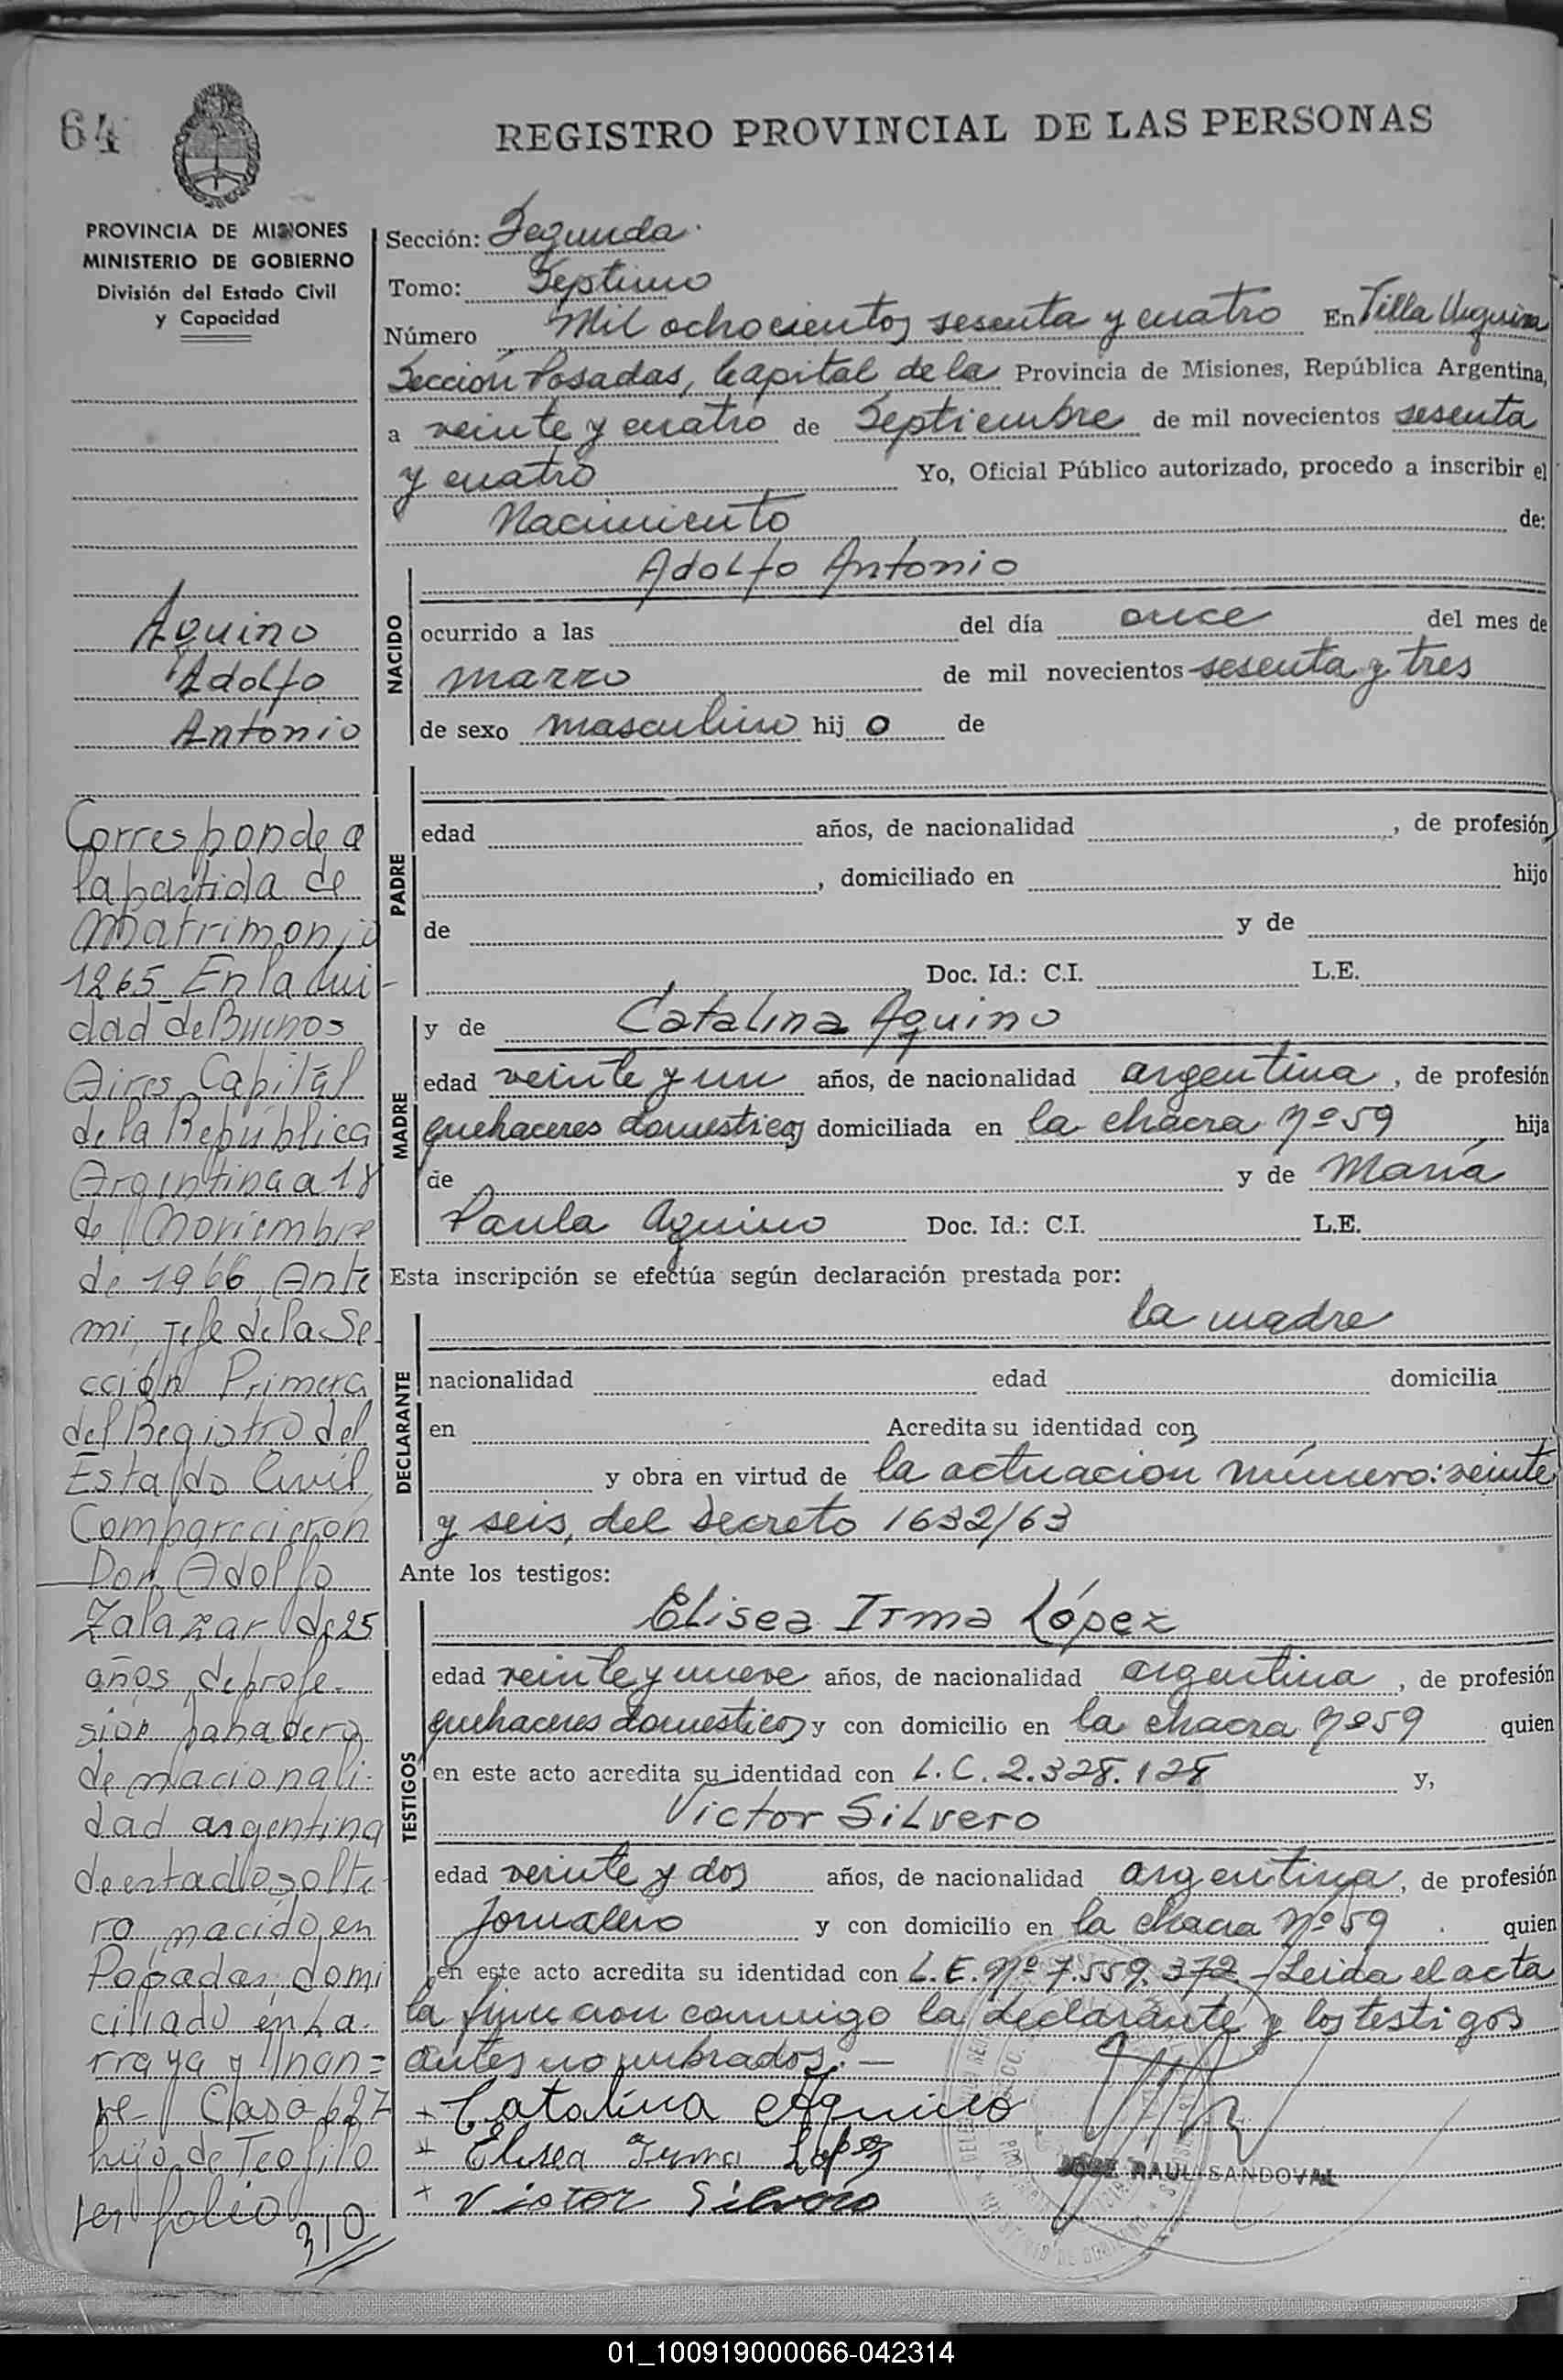 64
REGISTRO PROVINCIAL DE LAS PERSONAS
PROVINCIA DE MISIONES
MINISTERIO DE GOBIERNO
División del Estado Civil
y Capacidad
Aquino
Adolfo
Antonio
Corresponde a
la partida de
Matrimonio
1265 En la Ciu-
dad de Buenos
Aires Capital
de la República
Argentina a 18
de Noviembre
de 1966, Ante
mi, Jefe de la Se-
cción Primera
del Registro del
Estado Civil
Comparecieron
Don Adolfo
Zalazar de 25
años, de profe-
sion panadero
de nacionali-
dad argentina
de estado solte-
ro nacido en
Posadas, domi
ciliado en La-
rraya y
Casa 627
hijo de Teofilo
folio 310
Sección: Segunda.
Tomo: Septimo
Número Mil ochocientos sesenta y cuatro En Villa Urquiza
Sección Posadas, Capital de la Provincia de Misiones, República Argentina,
a veinte y cuatro de Septiembre de mil novecientos sesenta
y cuatro Yo, Oficial Público autorizado, procedo a inscribir el
Nacimiento de:
NACIDO
Adolfo Antonio
ocurrido a las del día once del mes de
marzo de mil novecientos sesenta y tres
de sexo masculino hij o de
PADRE
edad años, de nacionalidad , de profesión
, domiciliado en hijo
de y de
Doc. Id.: C.I. L.E.
MADRE
y de Catalina Aquino
edad veinte y un años, de nacionalidad argentina, de profesión
quehaceres domesticos domiciliada en la chacra Nº 59 hija
de y de María
Paula Aquino Doc. Id.: C.I. L.E.
Esta inscripción se efectúa según declaración prestada por:
DECLARANTE
la madre
nacionalidad edad domicilia
en Acredita su identidad con
y obra en virtud de la actuación número: veinte
y seis, del decreto 1632/63
Ante los testigos:
TESTIGOS
Elisea Irma López
edad veinte y nueve años, de nacionalidad argentina, de profesión
quehaceres domesticos y con domicilio en la chacra Nº 59 quien
en este acto acredita su identidad con L.C. 2.328.128 y,
Victor Silvero
edad veinte y dos años, de nacionalidad argentina, de profesión
Jornalero y con domicilio en la chacra Nº 59 quien
en este acto acredita su identidad con L.E. Nº 7.559.372 - Leida el acta
la firman conmigo la declarante y los testigos
antes nombrados. -
+ Catalina Aquino
+ Elisea Irma Lopez
+ Victor Silvero
JOSE RAUL SANDOVAL
01_100919000066-042314